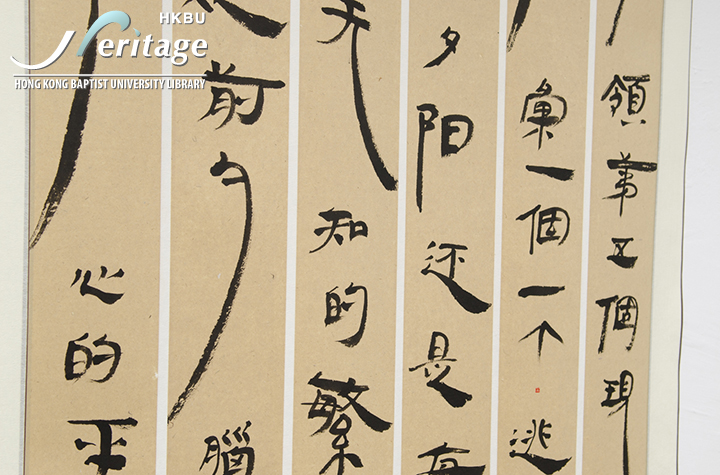 HKBU
Heritage
HONG KONG BAPTIST UNIVERSITY LIBRARY
領第五個現
一個一个逃
夕阳还是
知的繁
前 腦
心的平